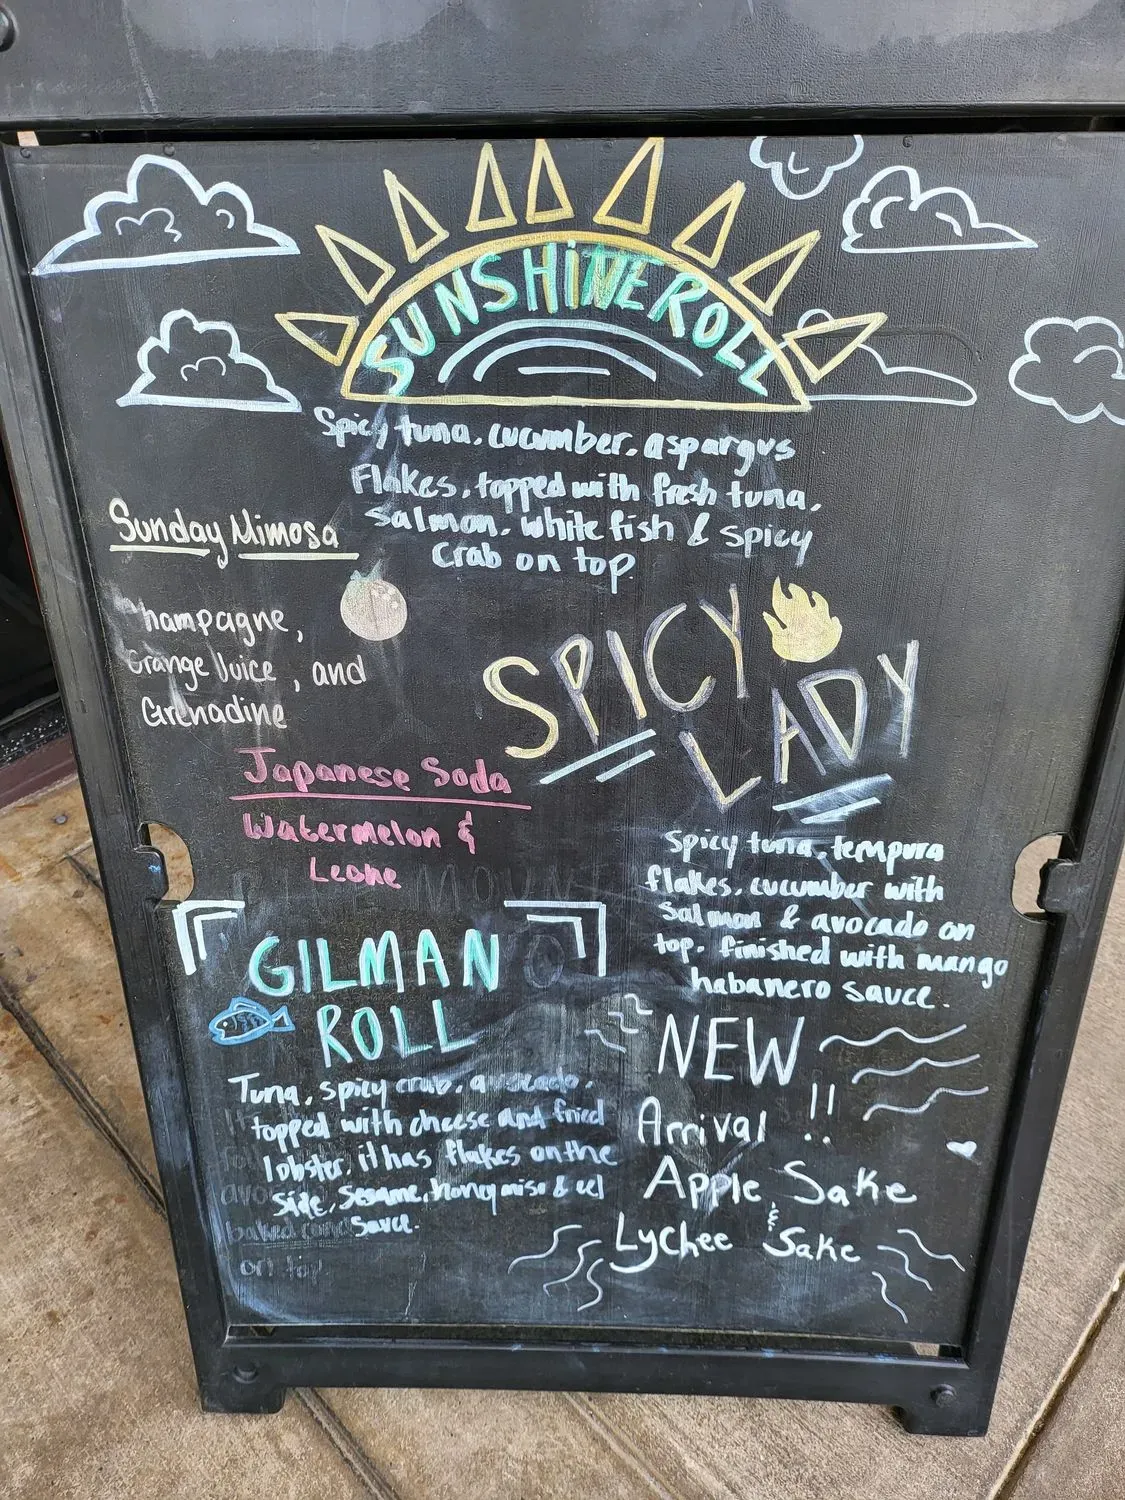 SUNSHINE ROLL
Spicy tuna, cucumber, aspargus
Flakes, topped with fresh tuna,
Salmon, white fish & spicy
Crab on top.
Sunday Mimosa
Champagne,
Orange Juice, and
Grenadine
SPICY
LADY
Spicy tuna, tempura
flakes, cucumber with
Salmon & avocado on
top, finished with mango
habanero sauce.
Japanese Soda
Watermelon &
GILMAN
ROLL
Tuna, spicy crab, avocado,
topped with cheese and fried
lobster, it has flakes on the
side, Sesame, honey miso & eel
Sauce.
baked
on top
NEW
Arrival !!
Apple Sake
&
Lychee Sake